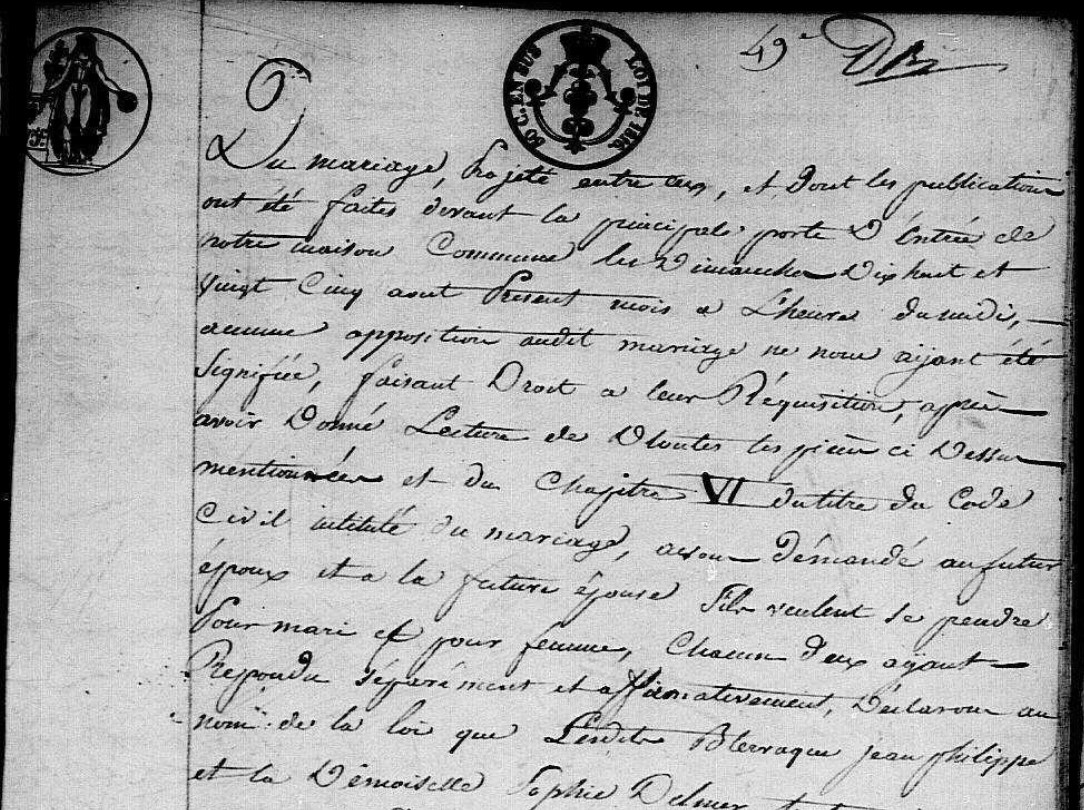 49e
50 C. EN SUS LOI DE 1816.
Du mariage, projeté entre eux, et dont les publications
ont été faites devant la principale porte D'Entrée de
notre maison Commune les Dimanches Dix huit et
vingt Cinq aout Present mois a L'heure du midi,
aucune opposition audit mariage ne nous ayant été
Signifiée, faisant Droit a leur Réquisition, après
avoir Donné Lecture de Dtoutes les pièces ci Dessus
mentionnées et du Chapitre VI du titre du Code
Civil intitulé du mariage, avons démandé au futur
époux et a la future épouse S'ils veulent se prendre
Pour mari et pour femme, Chacun d'eux ayant
Repondu séparément et affirmativement, Déclarons au
nom de la loi que Blervaque jean philippe
et la Démoiselle Sophie Delmer